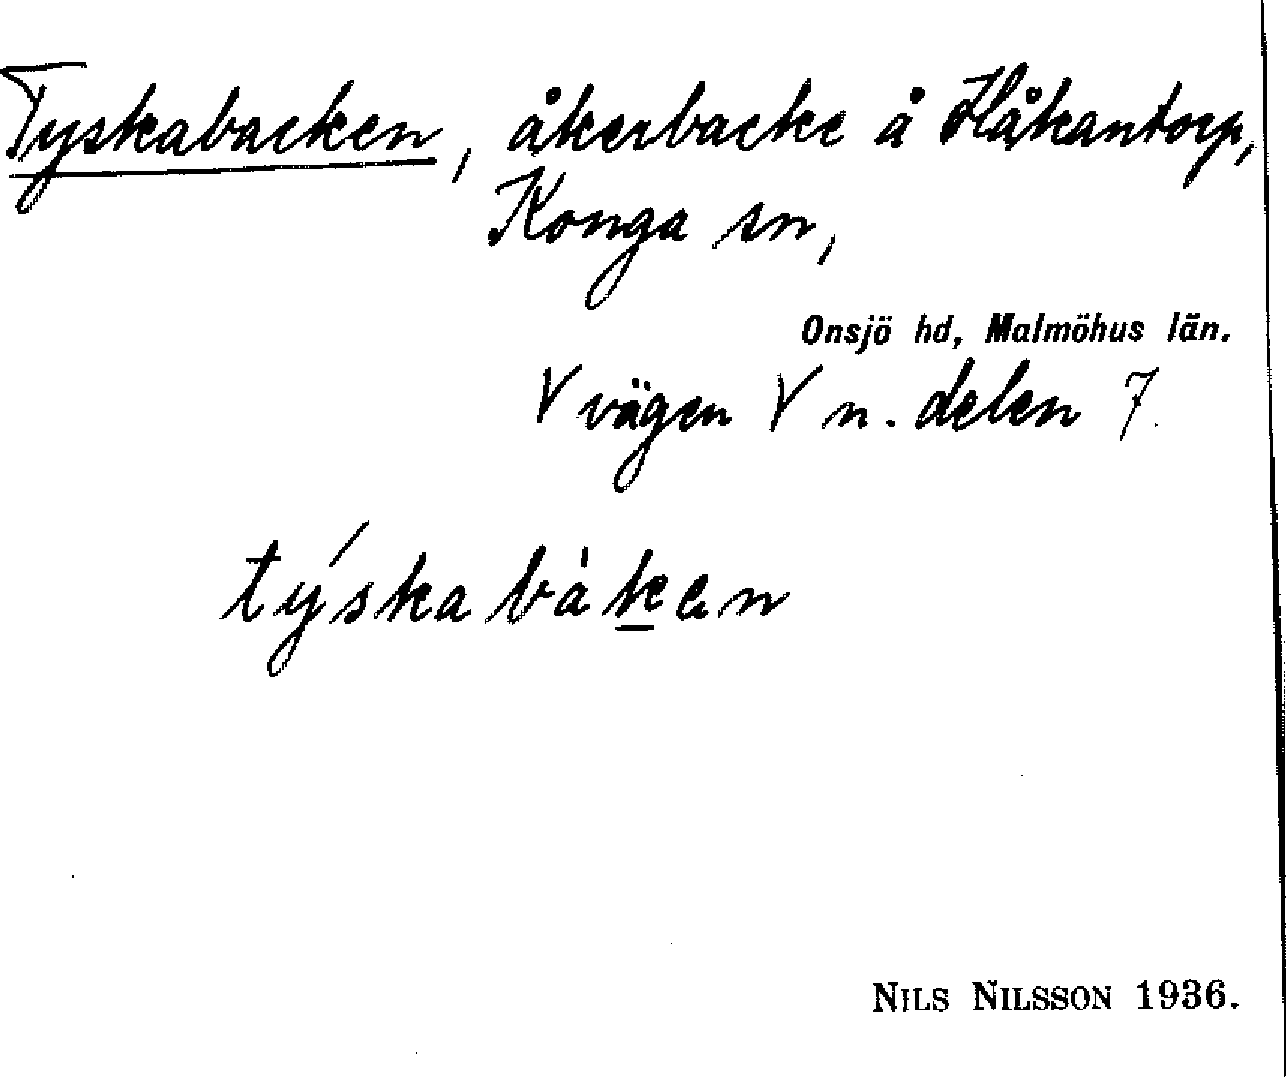 Tyskabacken, åkerbacke å Håkantorp,
Konga sn,
Onsjö hd, Malmöhus län.
V vägen V n. delen 7.
týska bàken
NILS NILSSON 1936.